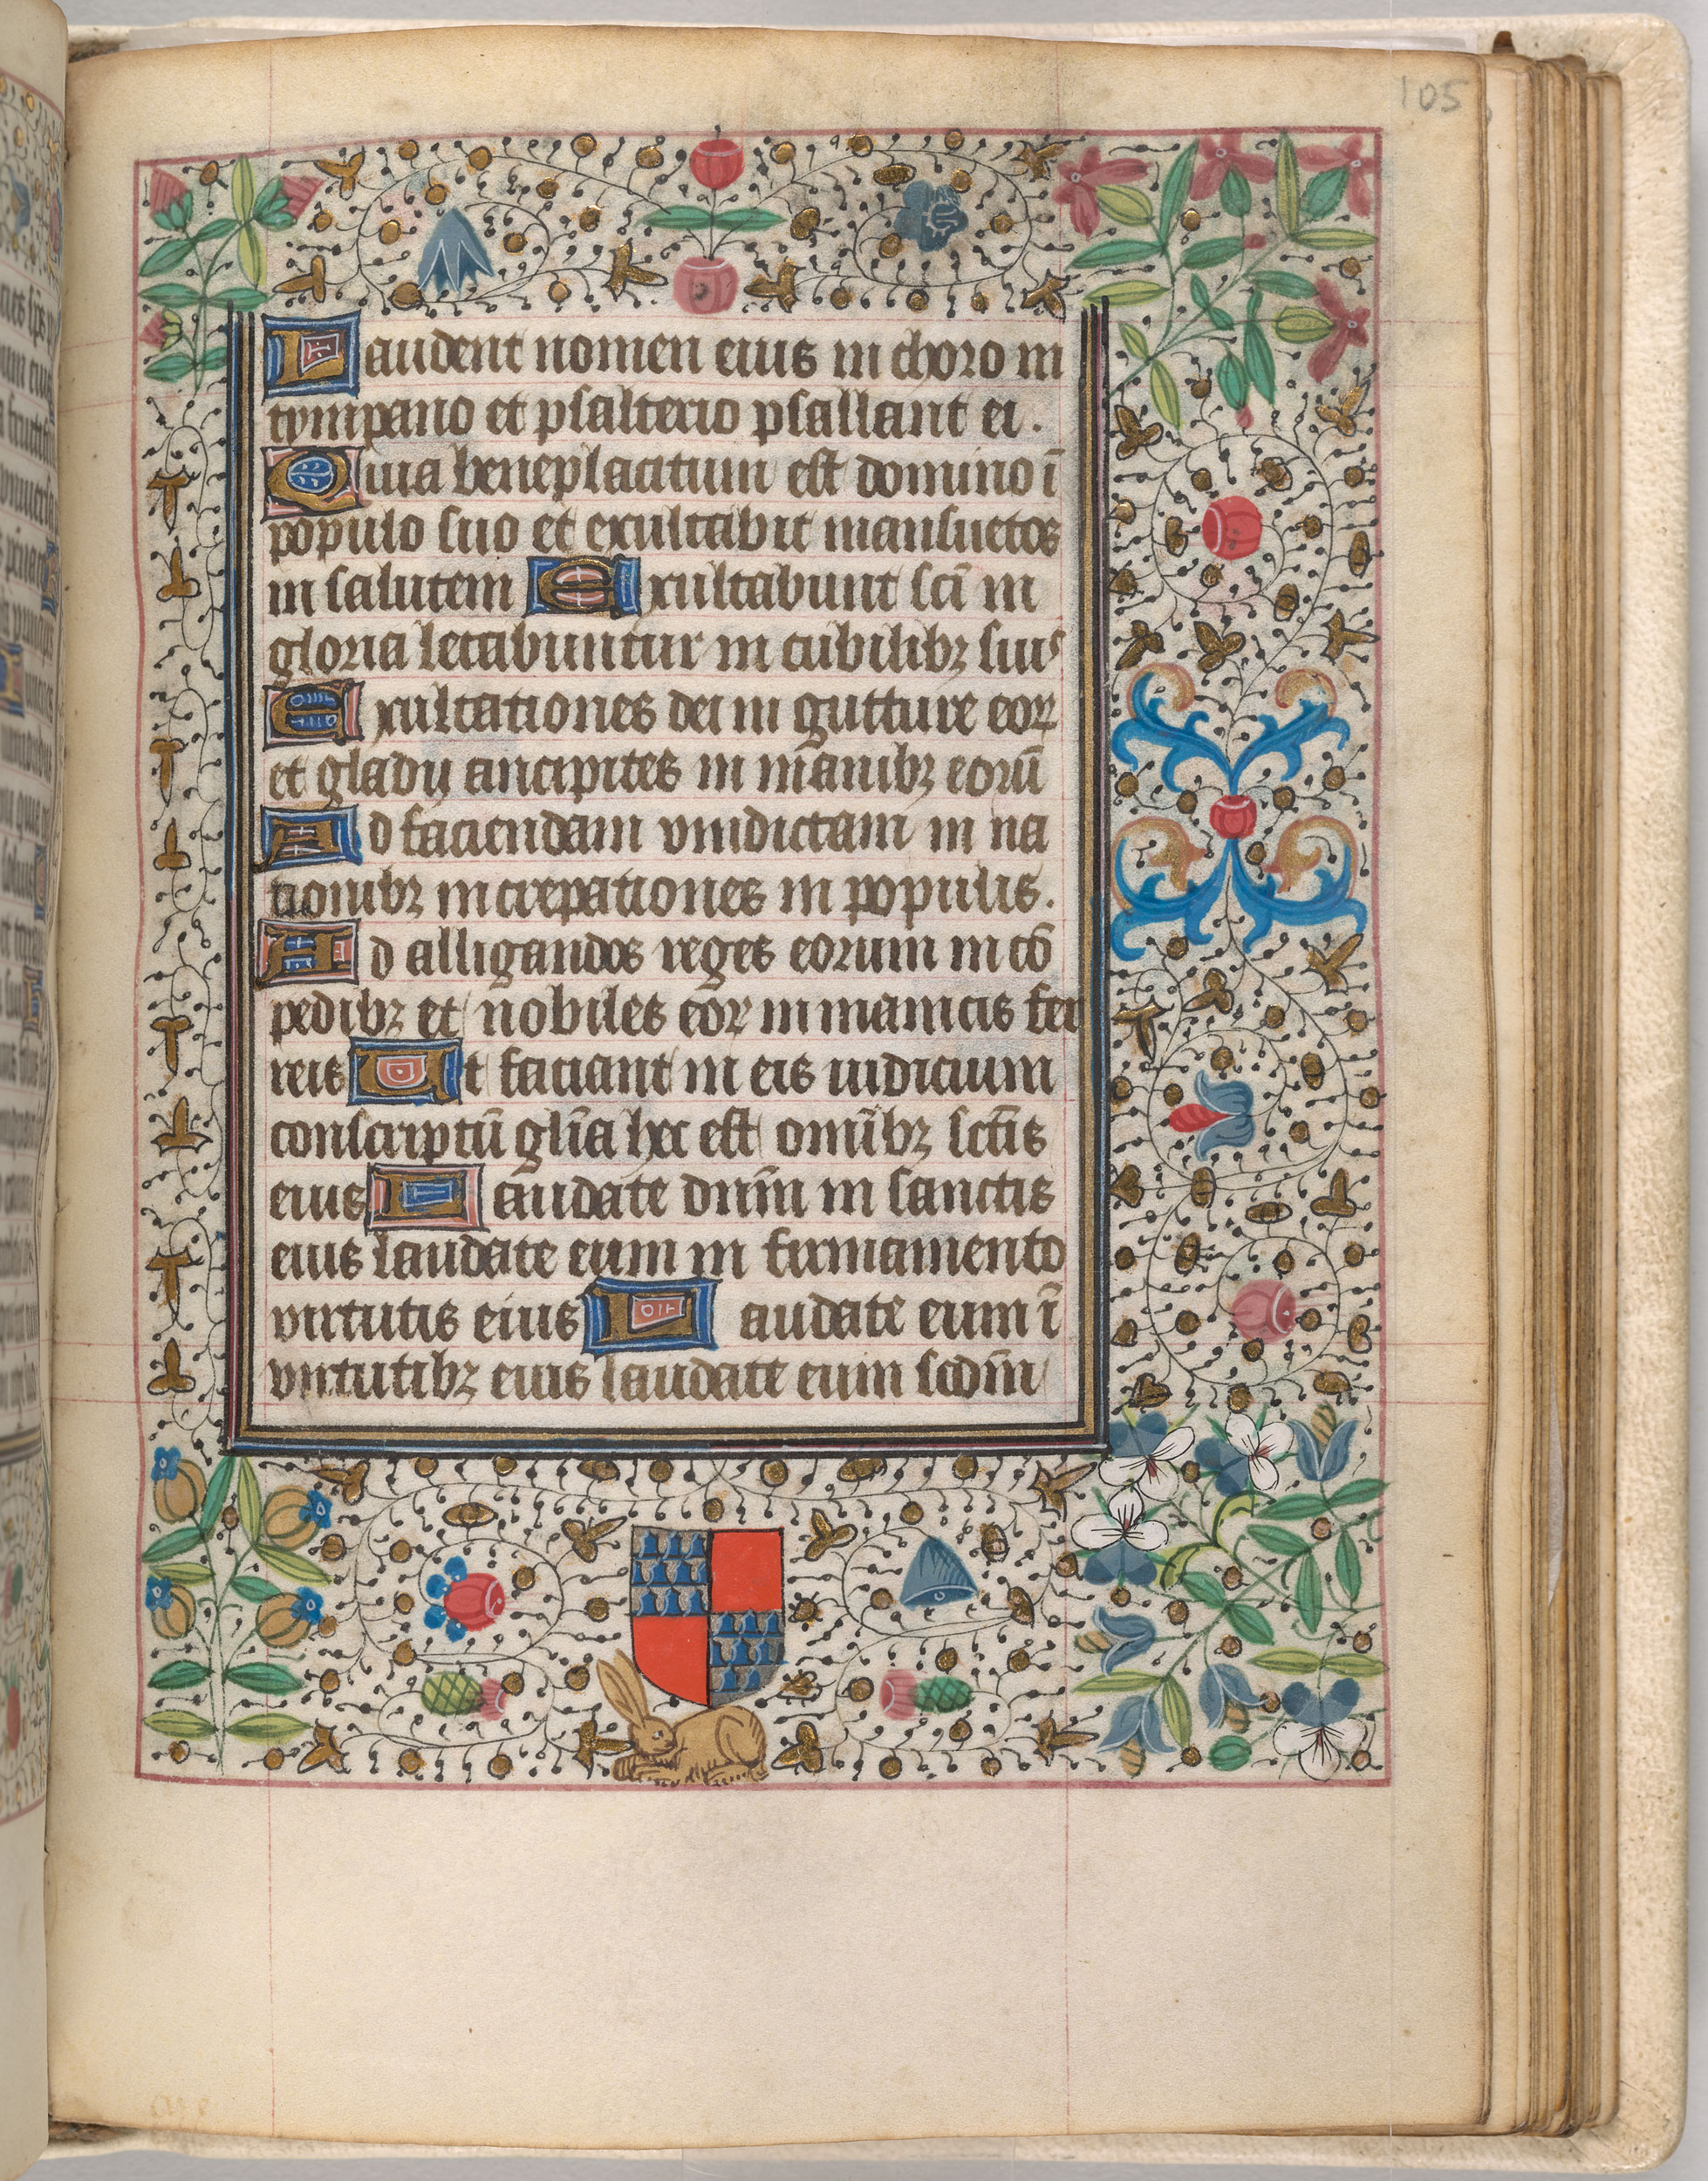 105
Laudent nomen eius in choro in
tympano et psalterio psallant ei.
Quia beneplacitum est domino ī
populo suo et exultabit mansuetos
in salutem Exultabunt scī in
gloria letabuntur in cubilibꝫ suis
Exultationes dei in gutture eoꝝ
et gladij ancipites in manibꝫ eorū
Ad faciendam vindictam in na
tionibꝫ increpationes in populis.
Ad alligandos reges eorum in cō
pedibꝫ et nobiles eoꝝ in manicis fer
reis Ut faciant in eis iudicium
conscriptū glīa hec est omībꝫ sctīs
eius Laudate dnm̄ in sanctis
eius laudate eum in firmamento
virtutis eius Laudate eum ī
virtutibꝫ eius laudate eum scdm̄